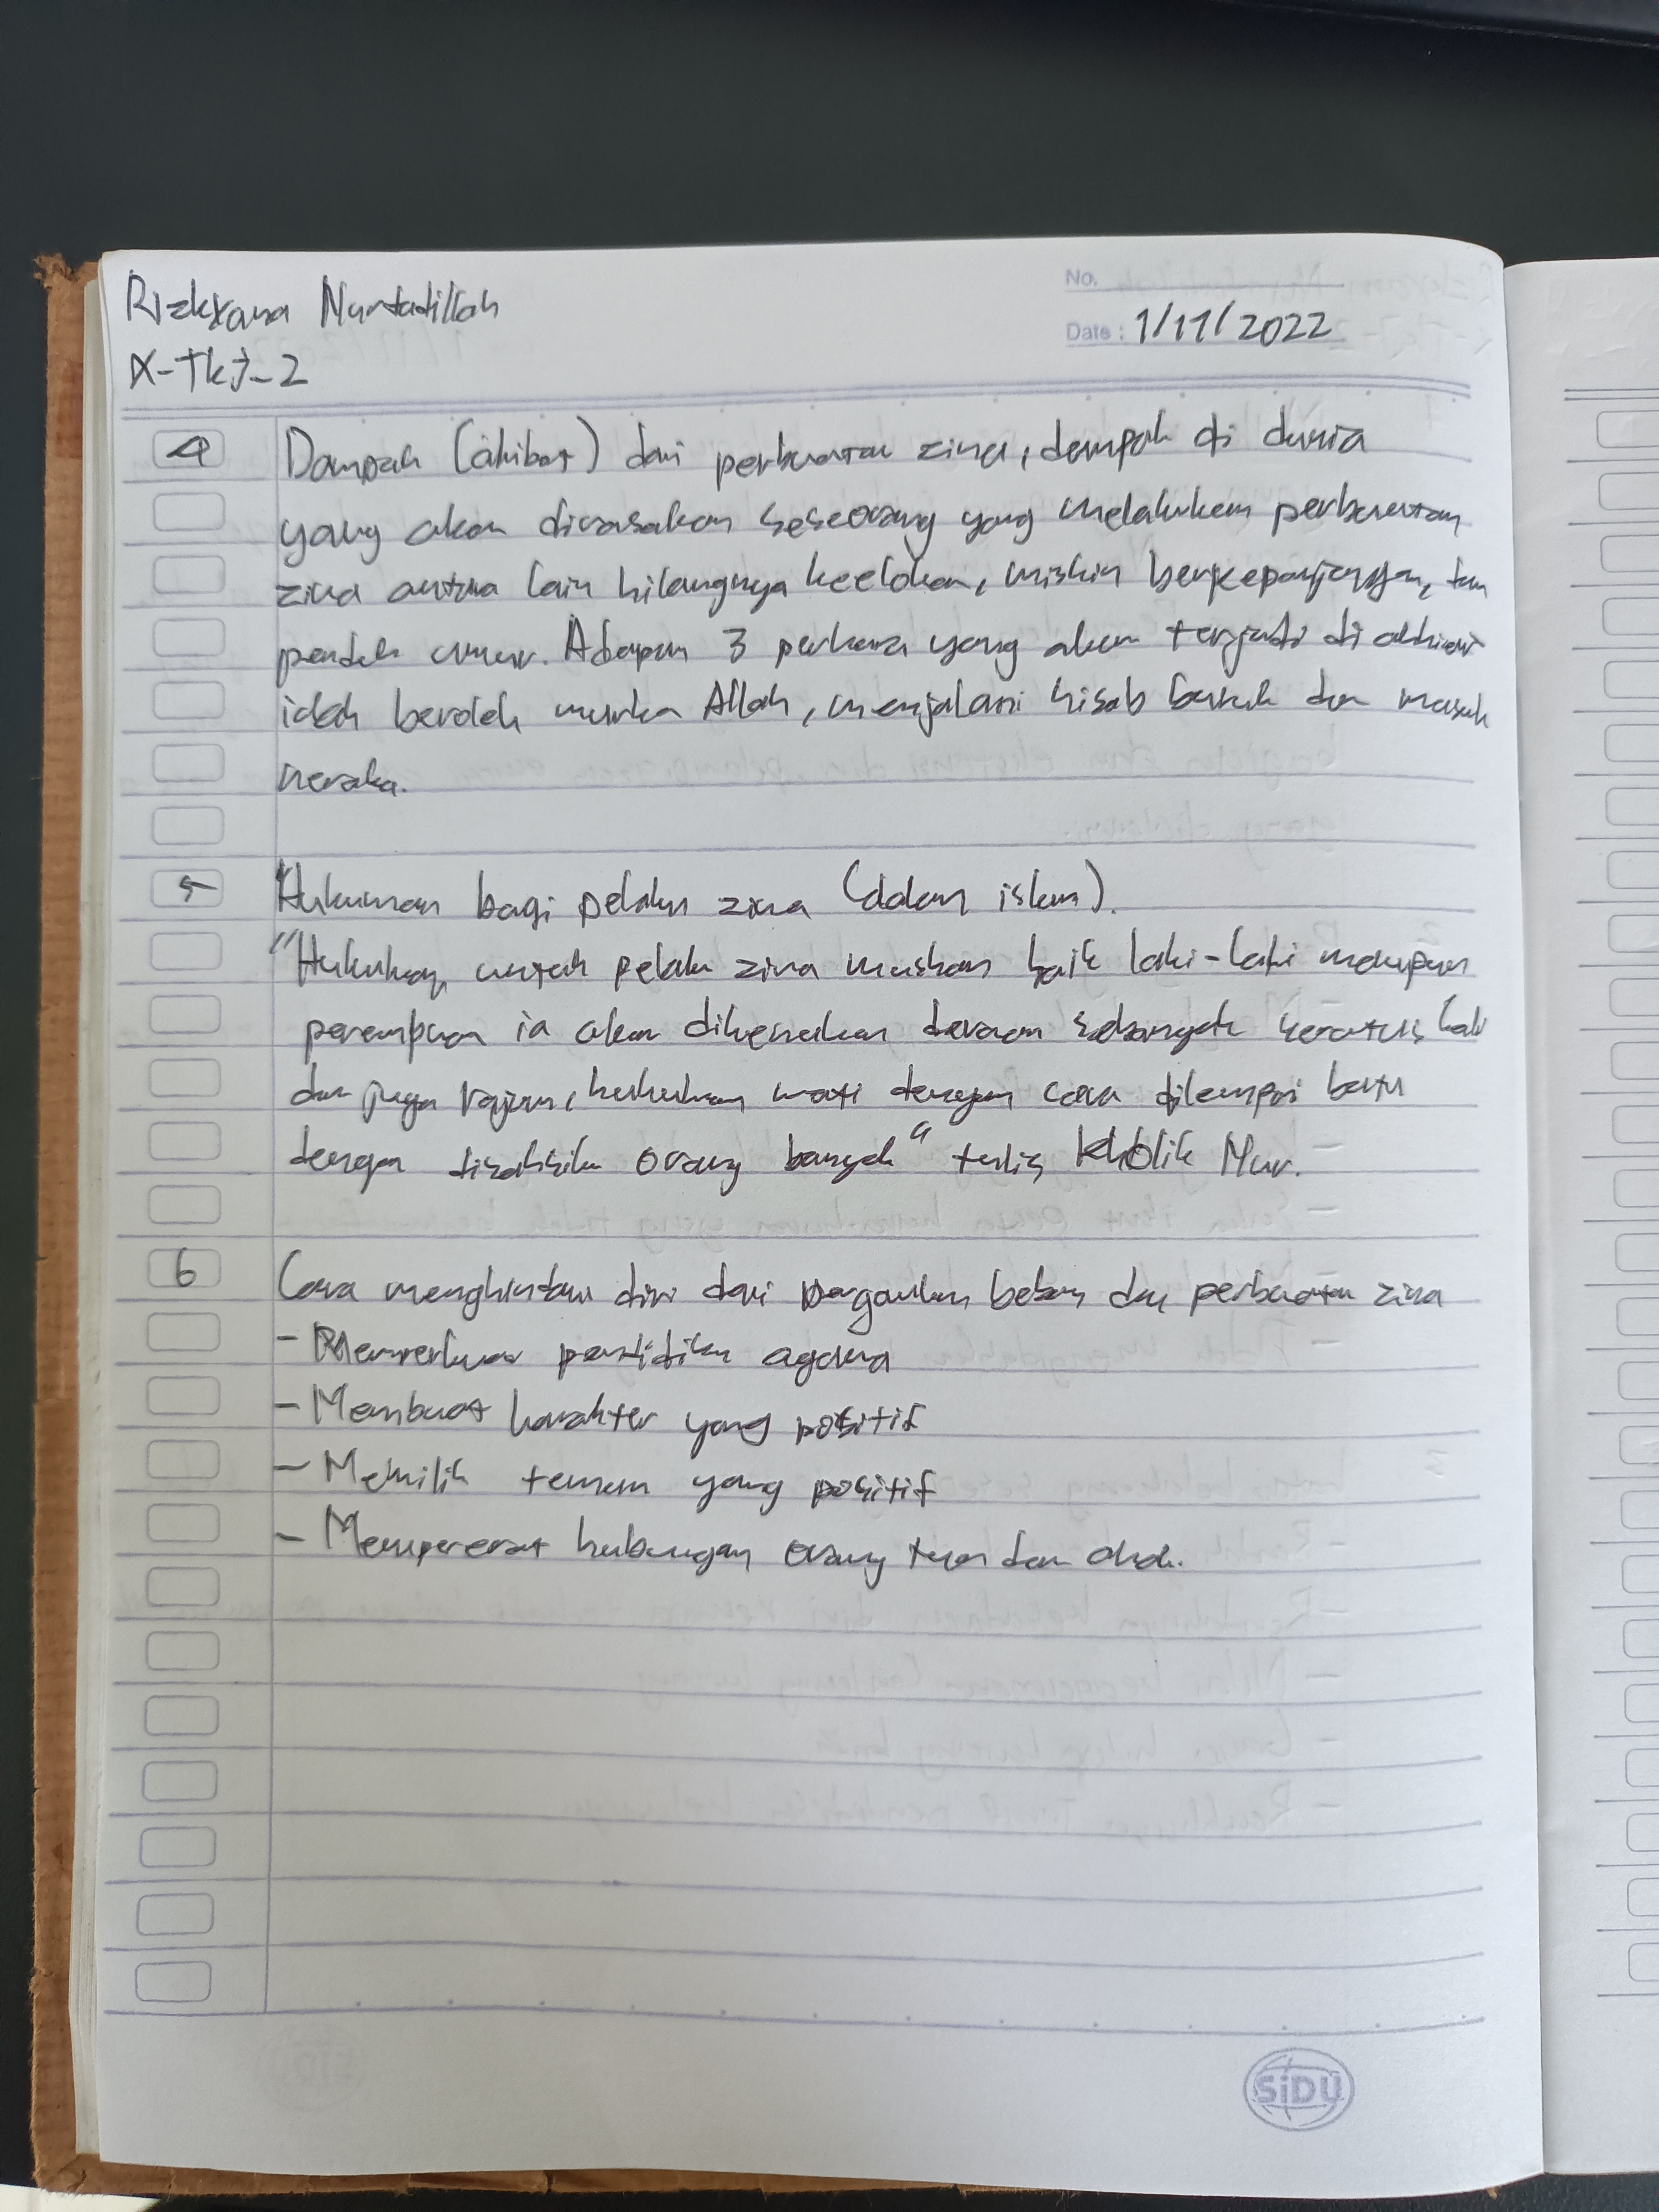 No.
Date : 1/11/2022
X-TKJ-2
4 Dampak (akibat) dari perbuatan zina, dampak di dunia
yang akan dirasakan seseorang yang melakukan perbuatan
zina antra lain hilangnya keelokan, miskin berkepanjangan, dan
pendek umur. Adapun 3 perkara yang akan terjadi di akhirat
ialah beroleh murka Allah, menjalani hisab buruk dan masuk
neraka.
5 Hukuman bagi pelaku zina (dalam islam).
"Hukuman untuk pelaku zina muskon baik laki-laki maupun
perempuan ia akan dikenakan deraan sebanyak seratus kali
dan juga rajam, hukuman mati dengan cara dilempari batu
dengan disaksikan orang banyak" tulis Kholik Nur.
6 Cara menghindari diri dari pergaulan bebas dan perbuatan zina
- pendidikan agama
- Membuat karakter yang positif
- Memilih teman yang positif
- Mempererat hubungan orang tua dan anak.
SiDU